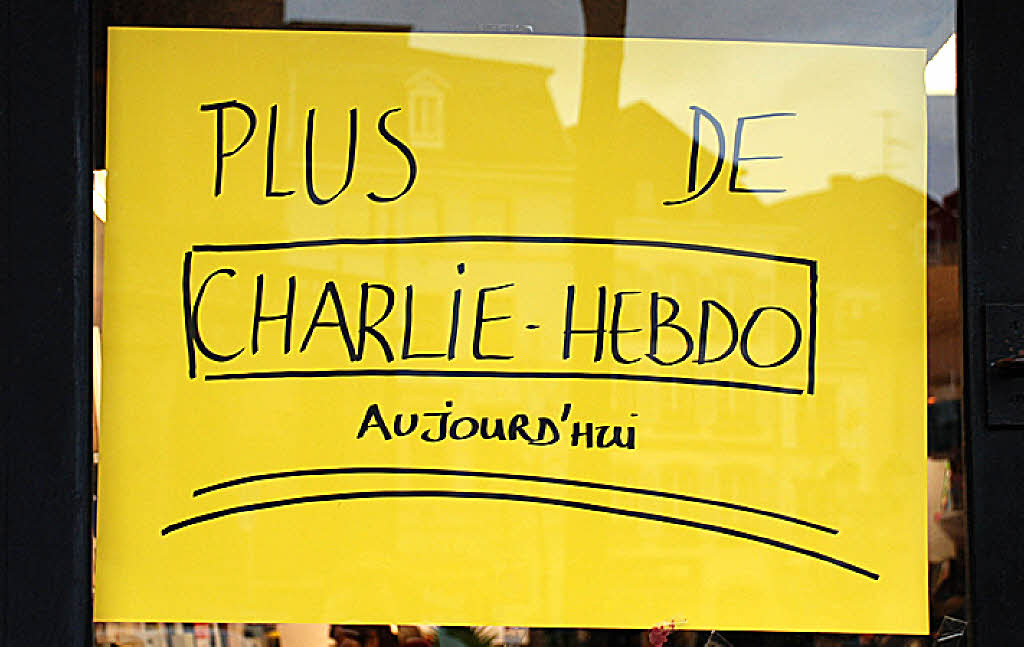 PLUS DE
CHARLiE-HEBDO
AUJOURD'HUi